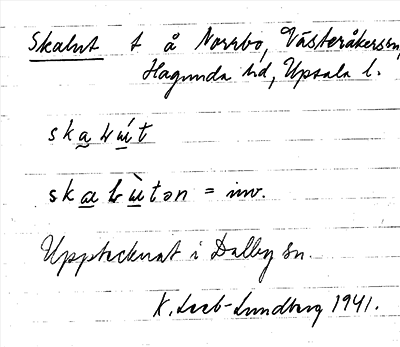 Skalut t å Norrbo, Västeråkers sn,
Hagunda hd, Upsala l.
skalut
skalùtən = inv.
Upptecknat i Dalby sn.
K. Loeb-Lundberg 1941.